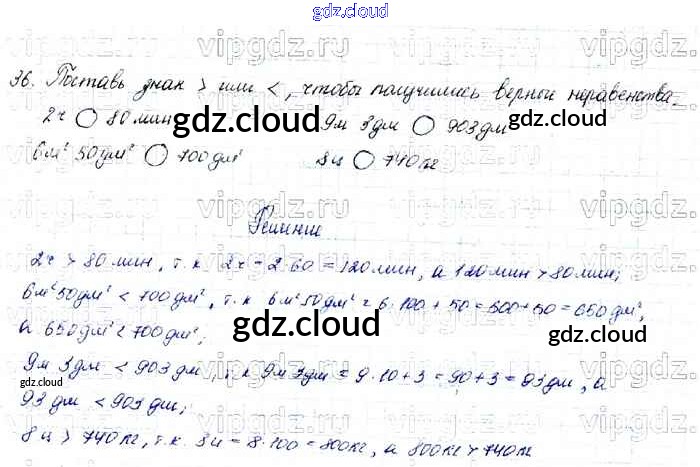 gdz.cloud
vipgdz.ru vipgdz.ru vipgdz.ru vipgdz.ru
36. Поставь знак > или <, чтобы получились верные неравенства.
2ч ○ 80 мин gdz.cloud 9м 3дм ○ 903дм
6м² 50дм² ○ 700дм² 8ц ○ 740кг
vipgdz.ru vipgdz.ru vipgdz.ru vipgdz.ru
Решение
2ч > 80 мин, т.к 2ч = 2·60 = 120мин, а 120мин > 80мин;
6м²50дм² < 700дм², т.к 6м²50дм² = 6·100 + 50 = 600+50 = 650дм²,
а 650дм² < 700дм²;
gdz.cloud
9м 3дм < 903дм, т.к 9м 3дм = 9·10+3 = 90+3 = 93дм, а
gdz.cloud gdz.cloud
93дм < 903дм;
8ц > 740кг, т.к. 8ц = 8·100 = 800кг, а 800кг > 740кг